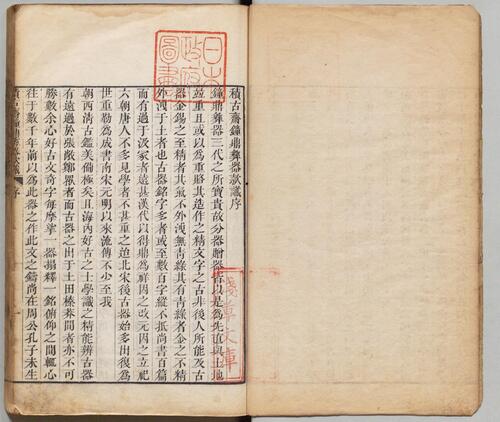 積古齋鐘鼎彝器款識序
鐘鼎彝器三代之所寶貴故分器贈器皆以是為先直與土地
竝重且或以為重賂其造作之精文字之古非後人所能及古
器金錫之至精者其氣不外洩無青綠其有青綠者金之不精
外洩于土者也古器銘字多者或至數百字縱不抵尚書百篇
而有過于汲冢者遠甚漢代以得鼎為祥因之改元因之立祀
六朝唐人不多見學者不甚重之迨北宋後古器始多出復為
世重勒為成書南宋元明以來流傳不少至我
朝西清古鑑美備極矣且海內好古之士學識之精能辨古器
有遠過於張敞鄭眾者而古器之出于土田榛莽間者亦不可
勝數余心好古文奇字每摩挲一器搨釋一銘俯仰之間輒心
往于數千年前以為此器之作此文之鑄尚在周公孔子未生
序
日本
政府
圖書
淺草文庫